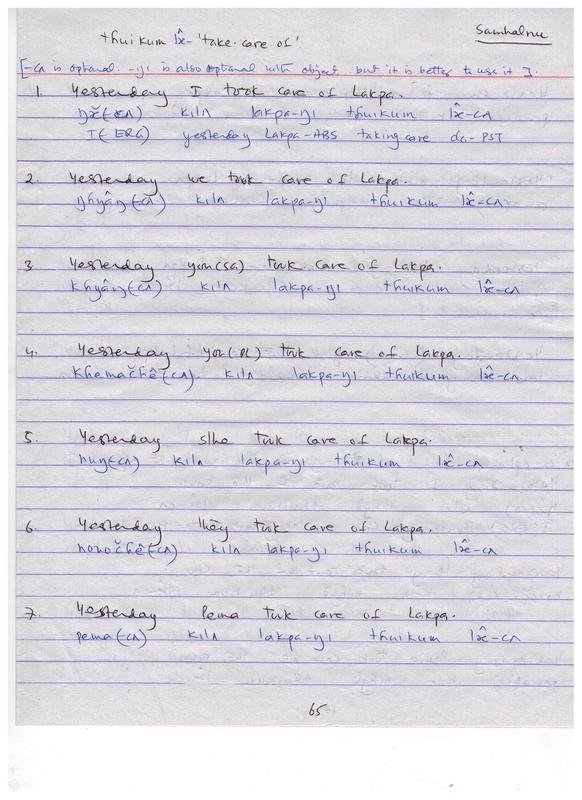 Samhalnu
thuikum lx̂- 'take care of'
[-cʌ is optional. -yi is also optional with object but it is better to use it].
1. Yesterday I took care of Lakpa.
kilʌ lakpa-yi thuikum lx̂-cʌ
I(ERG) yesterday Lakpa-ABS taking care do-PST
2. Yesterday we took care of Lakpa.
kilʌ lakpa-yi thuikum lx̂-cʌ
3. Yesterday you(SG) took care of Lakpa.
khyâŋ(cʌ) kilʌ lakpa-yi thuikum lx̂-cʌ
4. Yesterday you(PL) took care of Lakpa.
khemačhê(cʌ) kilʌ lakpa-yi thuikum lx̂-cʌ
5. Yesterday s/he took care of Lakpa.
kilʌ lakpa-yi thuikum lx̂-cʌ
6. Yesterday they took care of Lakpa.
nonočhê(cʌ) kilʌ lakpa-yi thuikum lx̂-cʌ
7. Yesterday Pema took care of Lakpa.
pema(-cʌ) kilʌ lakpa-yi thuikum lx̂-cʌ
65